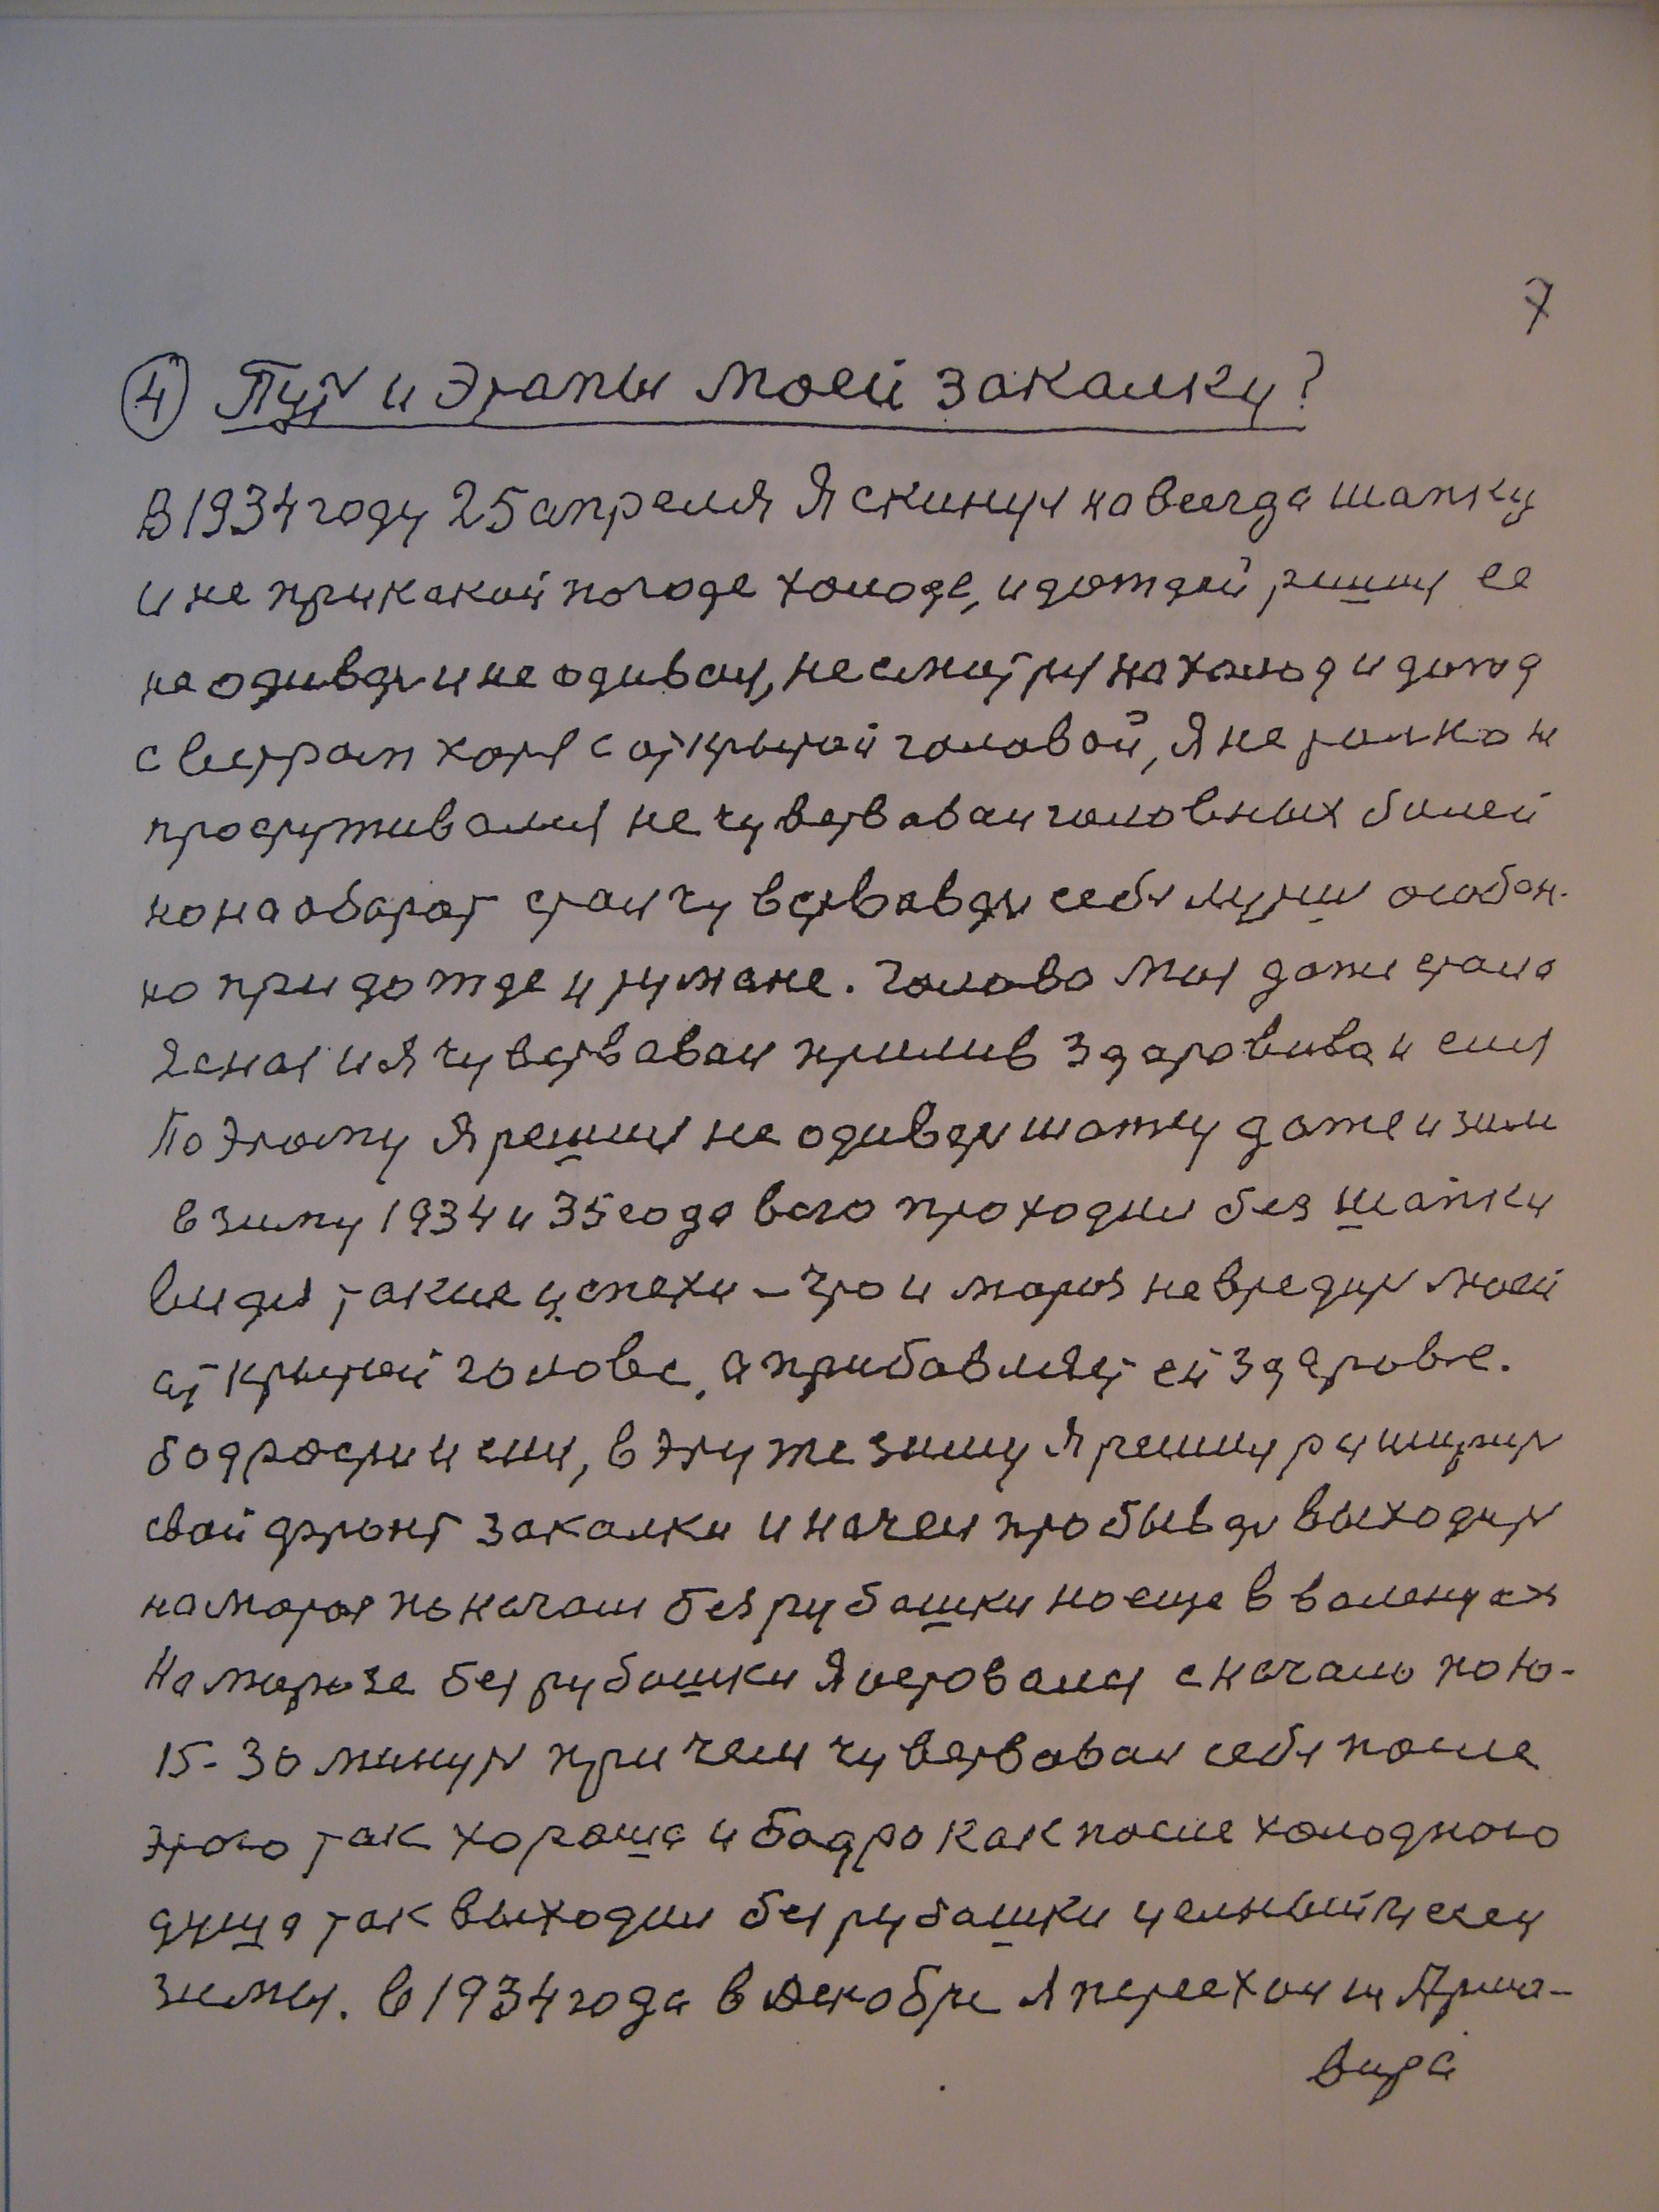 7
④ Путь и Этапы моей закалки?
В 1934 году 25 апреля Я скинул навсегда шапку
и не при какой погоде холоде, и дождей решил ее
не одивать и не одивал, не смотря на холод и дожд
с ветром ходя с открытой головой, Я не толко не
простуживался не чувствовал головных болей
но наоборот стал чувствовать себя лутше особен-
но при дожде и тумане. Голова моя даже стала
Ясная и Я чувствовал прилив здоровья и сил
Поэтому Я решил не одивать шапку даже и зимой
в зиму 1934 и 35 года проходил без шапки
видя такие успехи – что и мороз не вредит моей
открытой голове, а прибавляет ей здоровье.
бодрости и силы, в эту же зиму Я решил расширить
свой фронт закалки и начал пробывать выходить
на мороз по началу без рубашки но еще в валенках
На морозе без рубашки Я оставался с начало по 10-
15-30 минут при чем чувствовал себя после
этого так хорошо и бодро как после холодного
душа так выходил без рубашки
зимы. в 1934 года в декабре я переехал из Арма-
вира